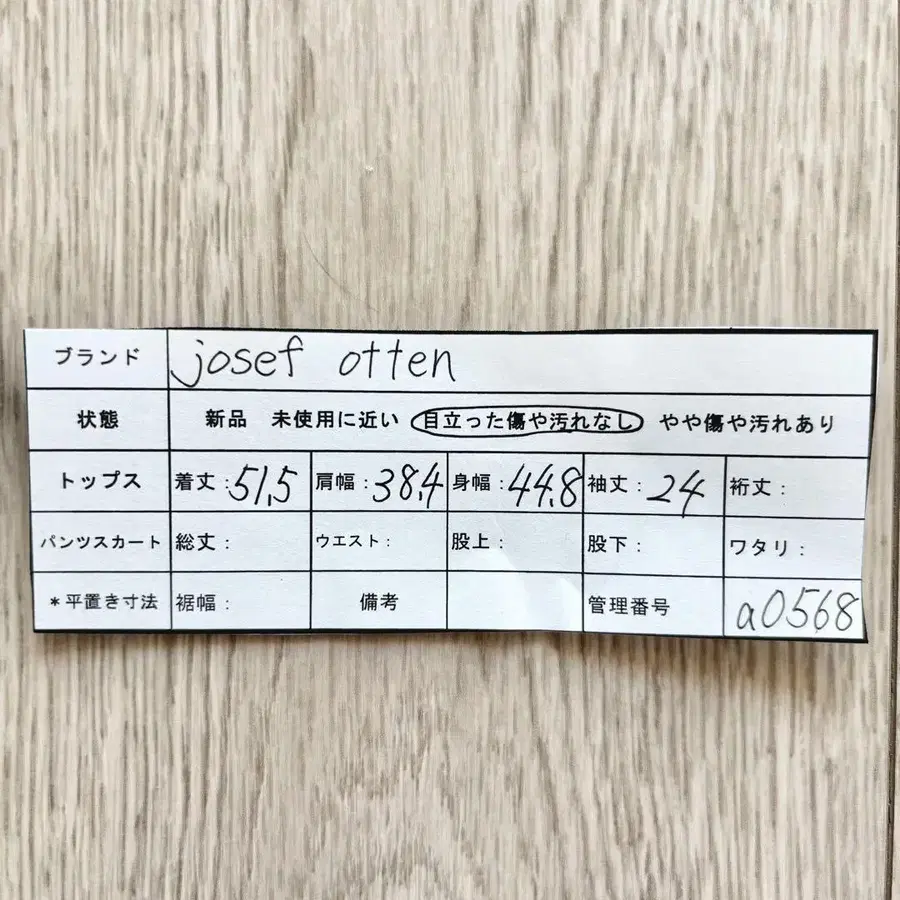 ブランド josef otten
状態 新品 未使用に近い 目立った傷や汚れなし やや傷や汚れあり
トップス 着丈:51,5 肩幅:38,4 身幅:44,8 袖丈:24 裄丈:
パンツスカート 総丈: ウエスト: 股上: 股下: ワタリ:
*平置き寸法 裾幅: 備考 管理番号 a0568